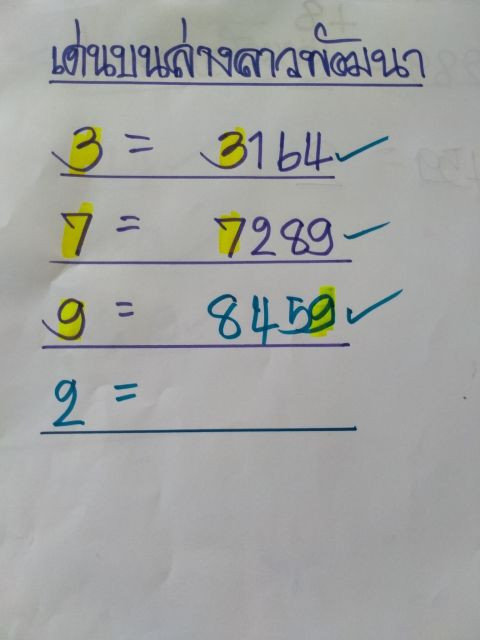 เด่นบนล่างลาวพัฒนา
3 = 3164 ✓
7 = 7289 ✓
9 = 8459 ✓
2 =